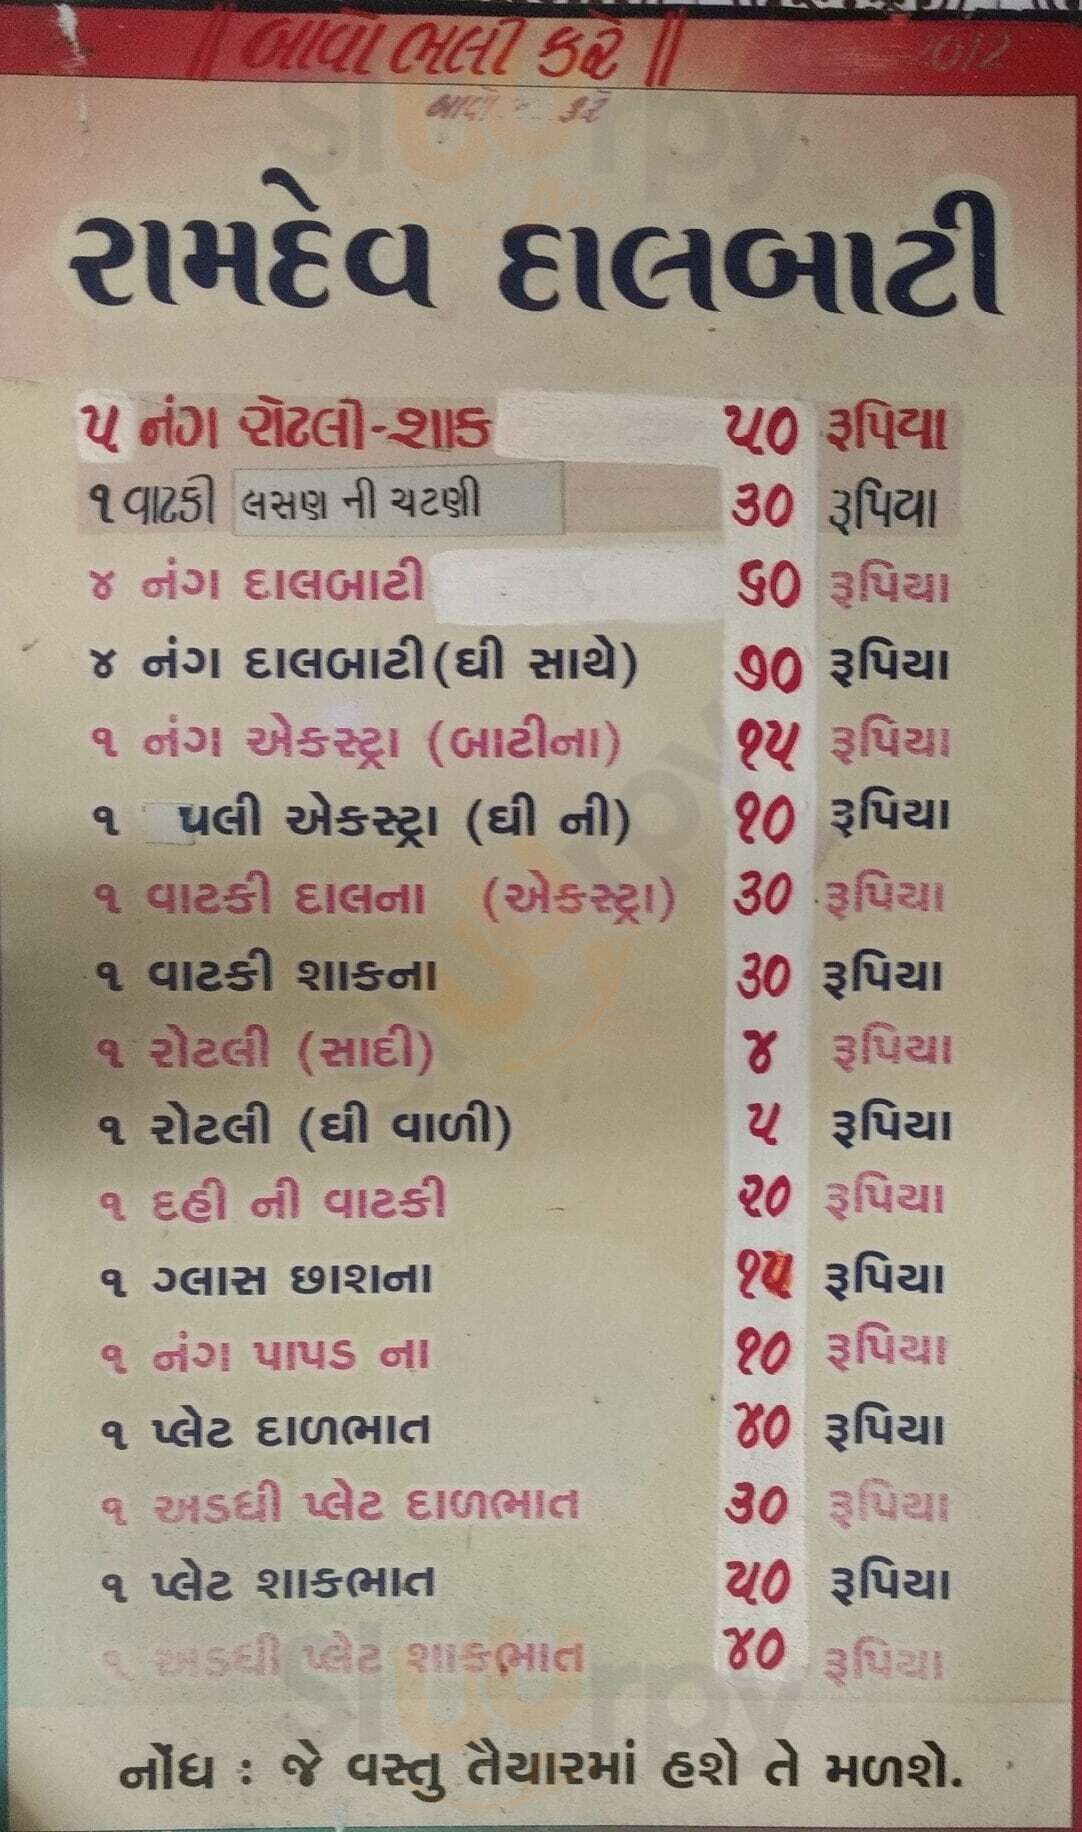 || બાવો ભલી કરે ||
2012
બાવો કરે
રામદેવ દાલબાટી
૫ નંગ રોટલી-શાક ૫૦ રૂપિયા
૧ વાટકી લસણ ની ચટણી ૩૦ રૂપિયા
૪ નંગ દાલબાટી ૬૦ રૂપિયા
૪ નંગ દાલબાટી (ઘી સાથે) ૭૦ રૂપિયા
૧ નંગ એકસ્ટ્રા (બાટીના) ૧૫ રૂપિયા
૧ પલી એકસ્ટ્રા (ઘી ની) ૧૦ રૂપિયા
૧ વાટકી દાલના (એકસ્ટ્રા) ૩૦ રૂપિયા
૧ વાટકી શાકના ૩૦ રૂપિયા
૧ રોટલી (સાદી) ૪ રૂપિયા
૧ રોટલી (ઘી વાળી) ૫ રૂપિયા
૧ દહી ની વાટકી ૨૦ રૂપિયા
૧ ગ્લાસ છાશના ૧૫ રૂપિયા
૧ નંગ પાપડ ના ૧૦ રૂપિયા
૧ પ્લેટ દાળભાત ૪૦ રૂપિયા
૧ અડધી પ્લેટ દાળભાત ૩૦ રૂપિયા
૧ પ્લેટ શાકભાત ૫૦ રૂપિયા
૧ અડધી પ્લેટ શાકભાત ૪૦ રૂપિયા
નોંધ : જે વસ્તુ તૈયારમાં હશે તે મળશે.